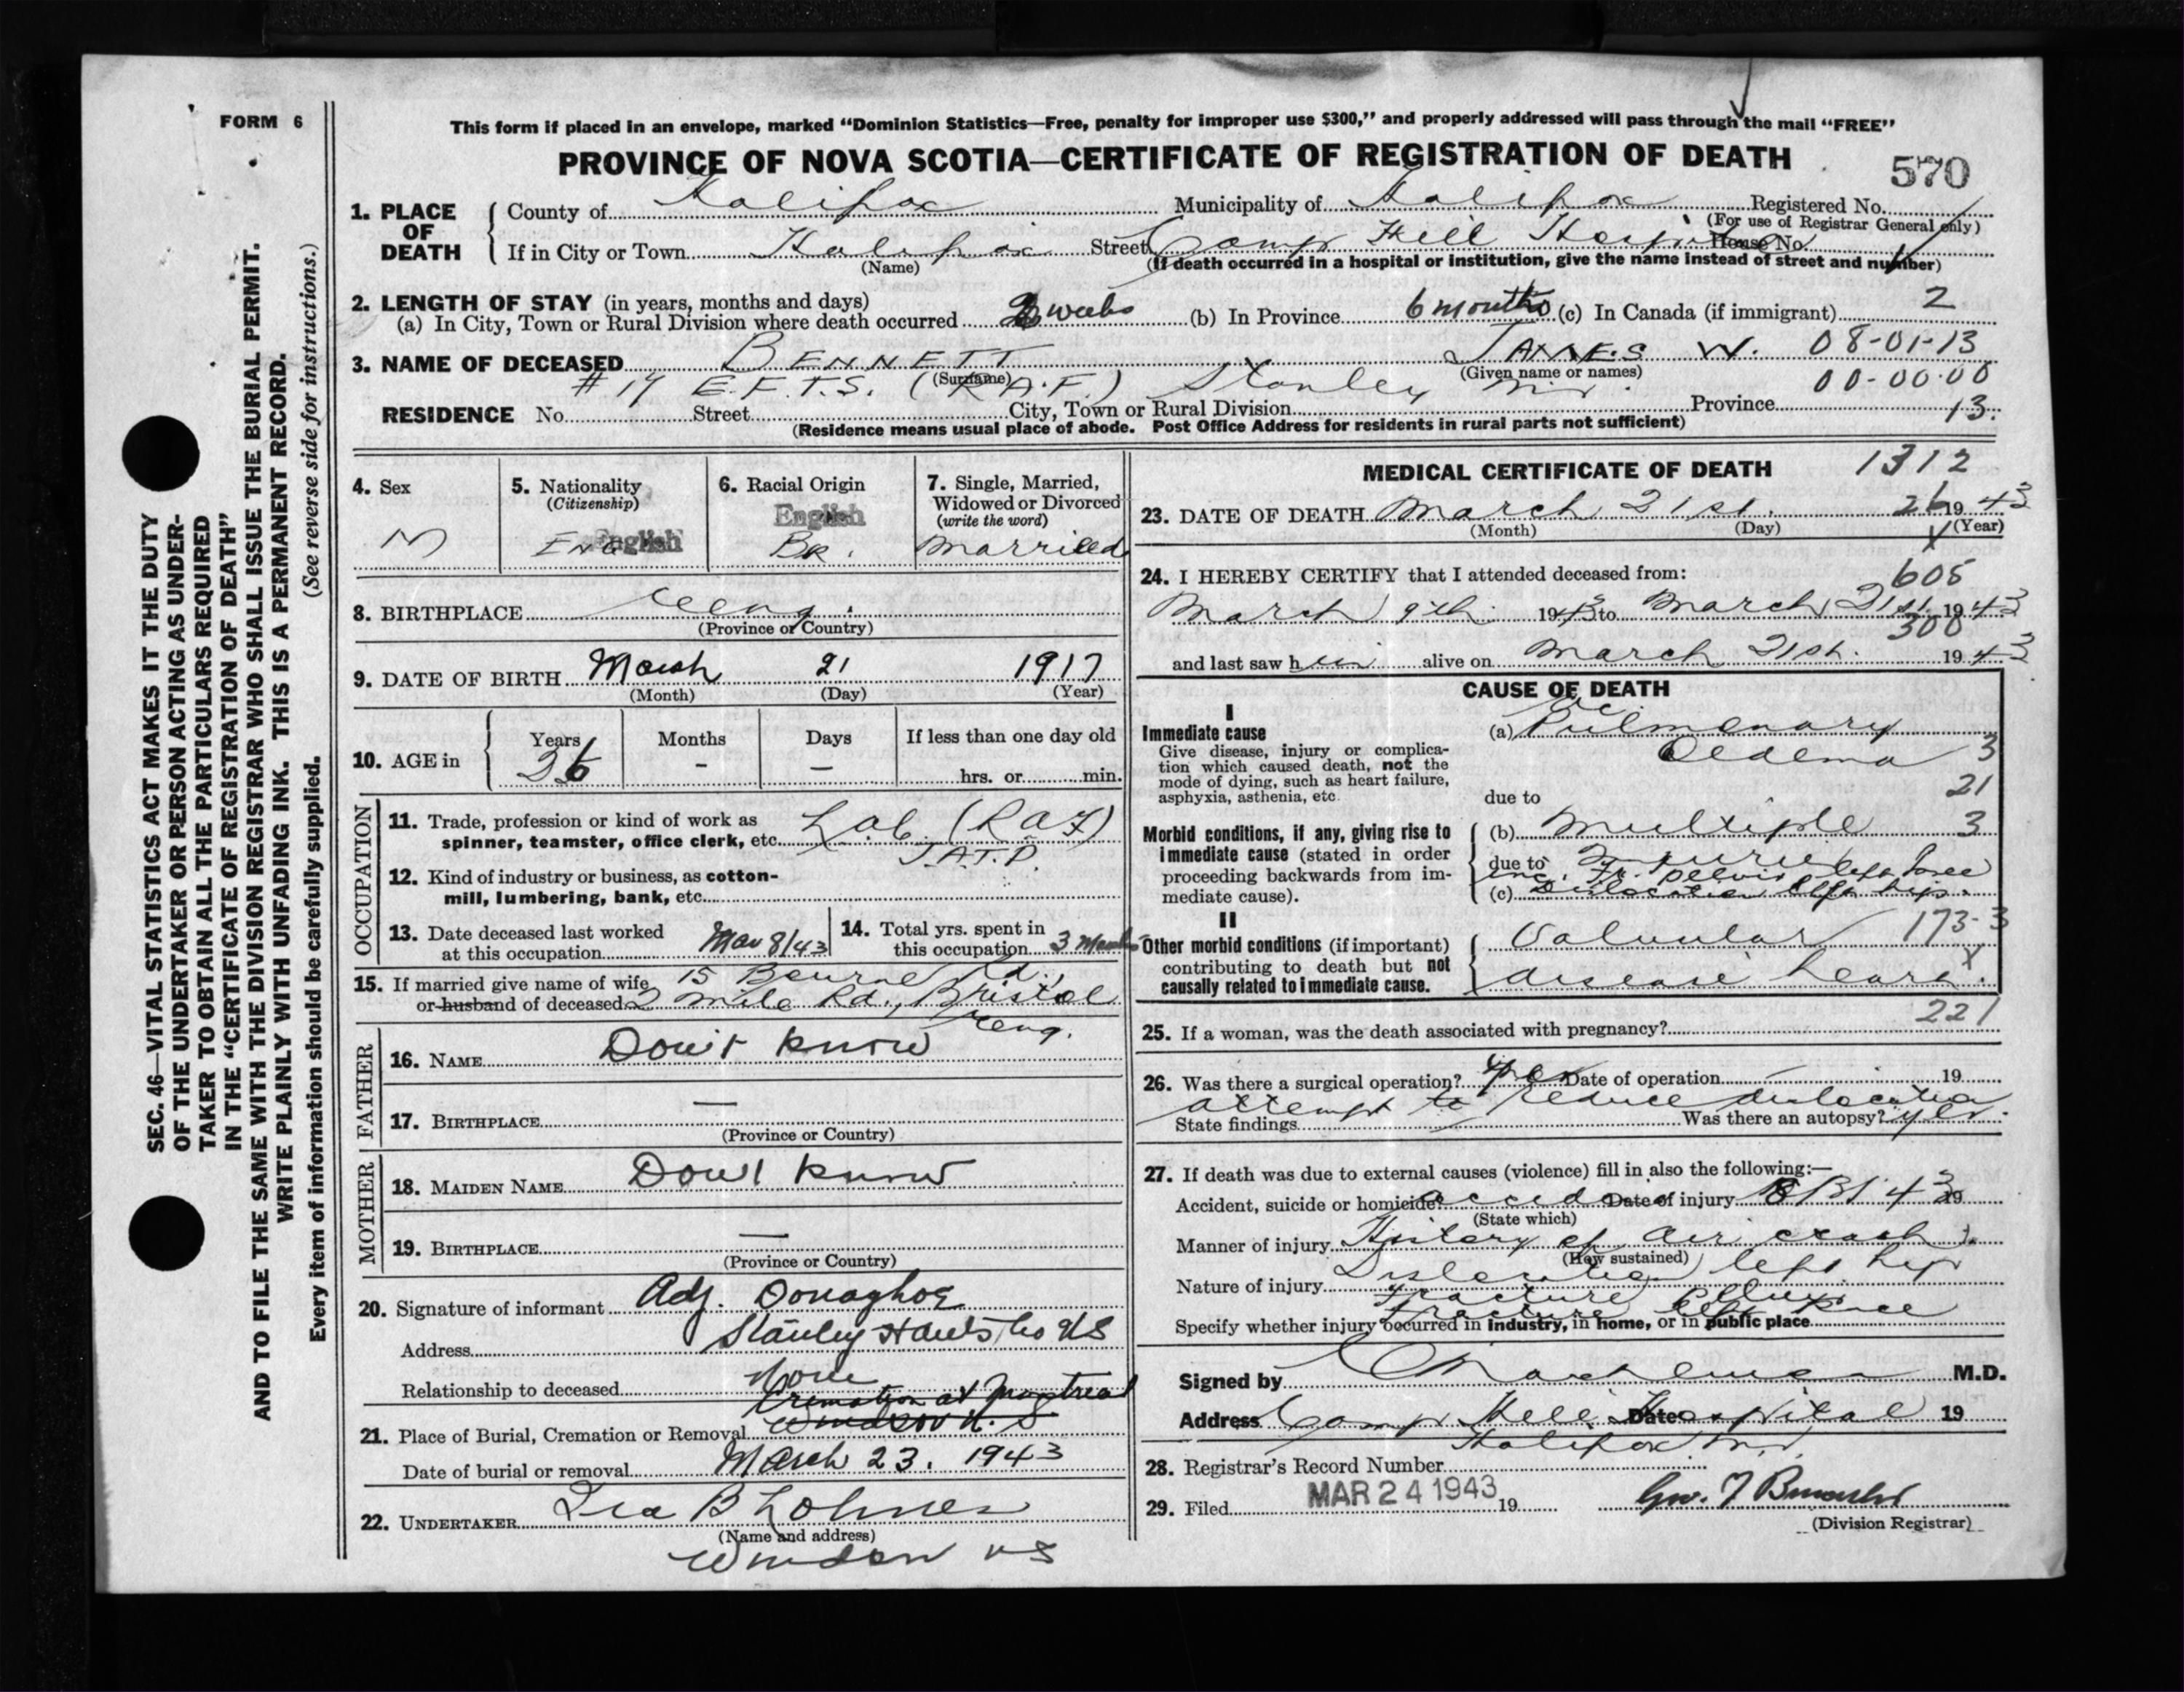 FORM 6
SEC. 46—VITAL STATISTICS ACT MAKES IT THE DUTY
OF THE UNDERTAKER OR PERSON ACTING AS UNDER-
TAKER TO OBTAIN ALL THE PARTICULARS REQUIRED
IN THE "CERTIFICATE OF REGISTRATION OF DEATH"
AND TO FILE THE SAME WITH THE DIVISION REGISTRAR WHO SHALL ISSUE THE BURIAL PERMIT.
WRITE PLAINLY WITH UNFADING INK. THIS IS A PERMANENT RECORD.
Every item of information should be carefully supplied. (See reverse side for instructions.)
This form if placed in an envelope, marked "Dominion Statistics—Free, penalty for improper use $300," and properly addressed will pass through the mail "FREE"
PROVINCE OF NOVA SCOTIA—CERTIFICATE OF REGISTRATION OF DEATH
570
1. PLACE OF DEATH
County of Halifax Municipality of Halifax Registered No.
(For use of Registrar General only)
If in City or Town Halifax Street Camp Hill Hospital House No.
(Name) (If death occurred in a hospital or institution, give the name instead of street and number)
2. LENGTH OF STAY (in years, months and days)
(a) In City, Town or Rural Division where death occurred 2 weeks (b) In Province 6 months (c) In Canada (if immigrant) 2
3. NAME OF DECEASED BENNETT JAMES W. 08-01-13
(Surname) (Given name or names)
#17 E.F.T.S. (R.A.F.) Stanley N.S. 00-00-00
RESIDENCE No. Street City, Town or Rural Division Province 13.
(Residence means usual place of abode. Post Office Address for residents in rural parts not sufficient)
4. Sex
M
5. Nationality
(Citizenship)
ENG English
6. Racial Origin
English
BR.
7. Single, Married,
Widowed or Divorced
(write the word)
Married
8. BIRTHPLACE Eng.
(Province or Country)
9. DATE OF BIRTH March 21 1917
(Month) (Day) (Year)
10. AGE in
Years Months Days If less than one day old
26 - - hrs. or min.
OCCUPATION
11. Trade, profession or kind of work as
spinner, teamster, office clerk, etc. Lab. (RAF)
12. Kind of industry or business, as cotton-
mill, lumbering, bank, etc.
13. Date deceased last worked
at this occupation Mar 8/43
14. Total yrs. spent in
this occupation 3 Months
15. If married give name of wife
or husband of deceased
15 Bourne Rd.,
2 Mile Rd., Bristol
Eng.
FATHER
16. NAME Don't know
17. BIRTHPLACE —
(Province or Country)
MOTHER
18. MAIDEN NAME Don't know
19. BIRTHPLACE —
(Province or Country)
20. Signature of informant Adj. Donaghoe
Address Stanley Hants Co NS
Relationship to deceased None
Cremation at Montreal
21. Place of Burial, Cremation or Removal Windsor N.S
Date of burial or removal March 23. 1943
22. UNDERTAKER Ira B Lohnes
(Name and address)
Windsor NS
MEDICAL CERTIFICATE OF DEATH
1312
23. DATE OF DEATH March 21st. 26 1943
(Month) (Day) (Year)
24. I HEREBY CERTIFY that I attended deceased from:
605
March 9th 1943 to March 21st 1943
300
and last saw him alive on March 21st. 1943
CAUSE OF DEATH
I
Immediate cause
Give disease, injury or complica-
tion which caused death, not the
mode of dying, such as heart failure,
asphyxia, asthenia, etc.
(a) Pulmonary
Oedema 3
21
due to
Morbid conditions, if any, giving rise to
immediate cause (stated in order
proceeding backwards from im-
mediate cause).
(b) Multiple 3
due to Injuries
inc. Fr. pelvis left knee
(c) Dislocation left hip.
II
Other morbid conditions (if important)
contributing to death but not
causally related to immediate cause.
Valvular 173-3
disease heart. X
221
25. If a woman, was the death associated with pregnancy?
26. Was there a surgical operation? yes Date of operation 19
attempt to reduce dislocation
State findings Was there an autopsy? yes.
27. If death was due to external causes (violence) fill in also the following:—
Accident, suicide or homicide? accident Date of injury 8/3/43 19
(State which)
Manner of injury History of air crash
(How sustained)
Nature of injury Dislocation left hip
fracture pelvis
fracture left knee
Specify whether injury occurred in industry, in home, or in public place
Signed by M.D.
Address Camp Hill Hospital Date 19
Halifax N.S.
28. Registrar's Record Number
29. Filed MAR 24 1943 19
(Division Registrar)